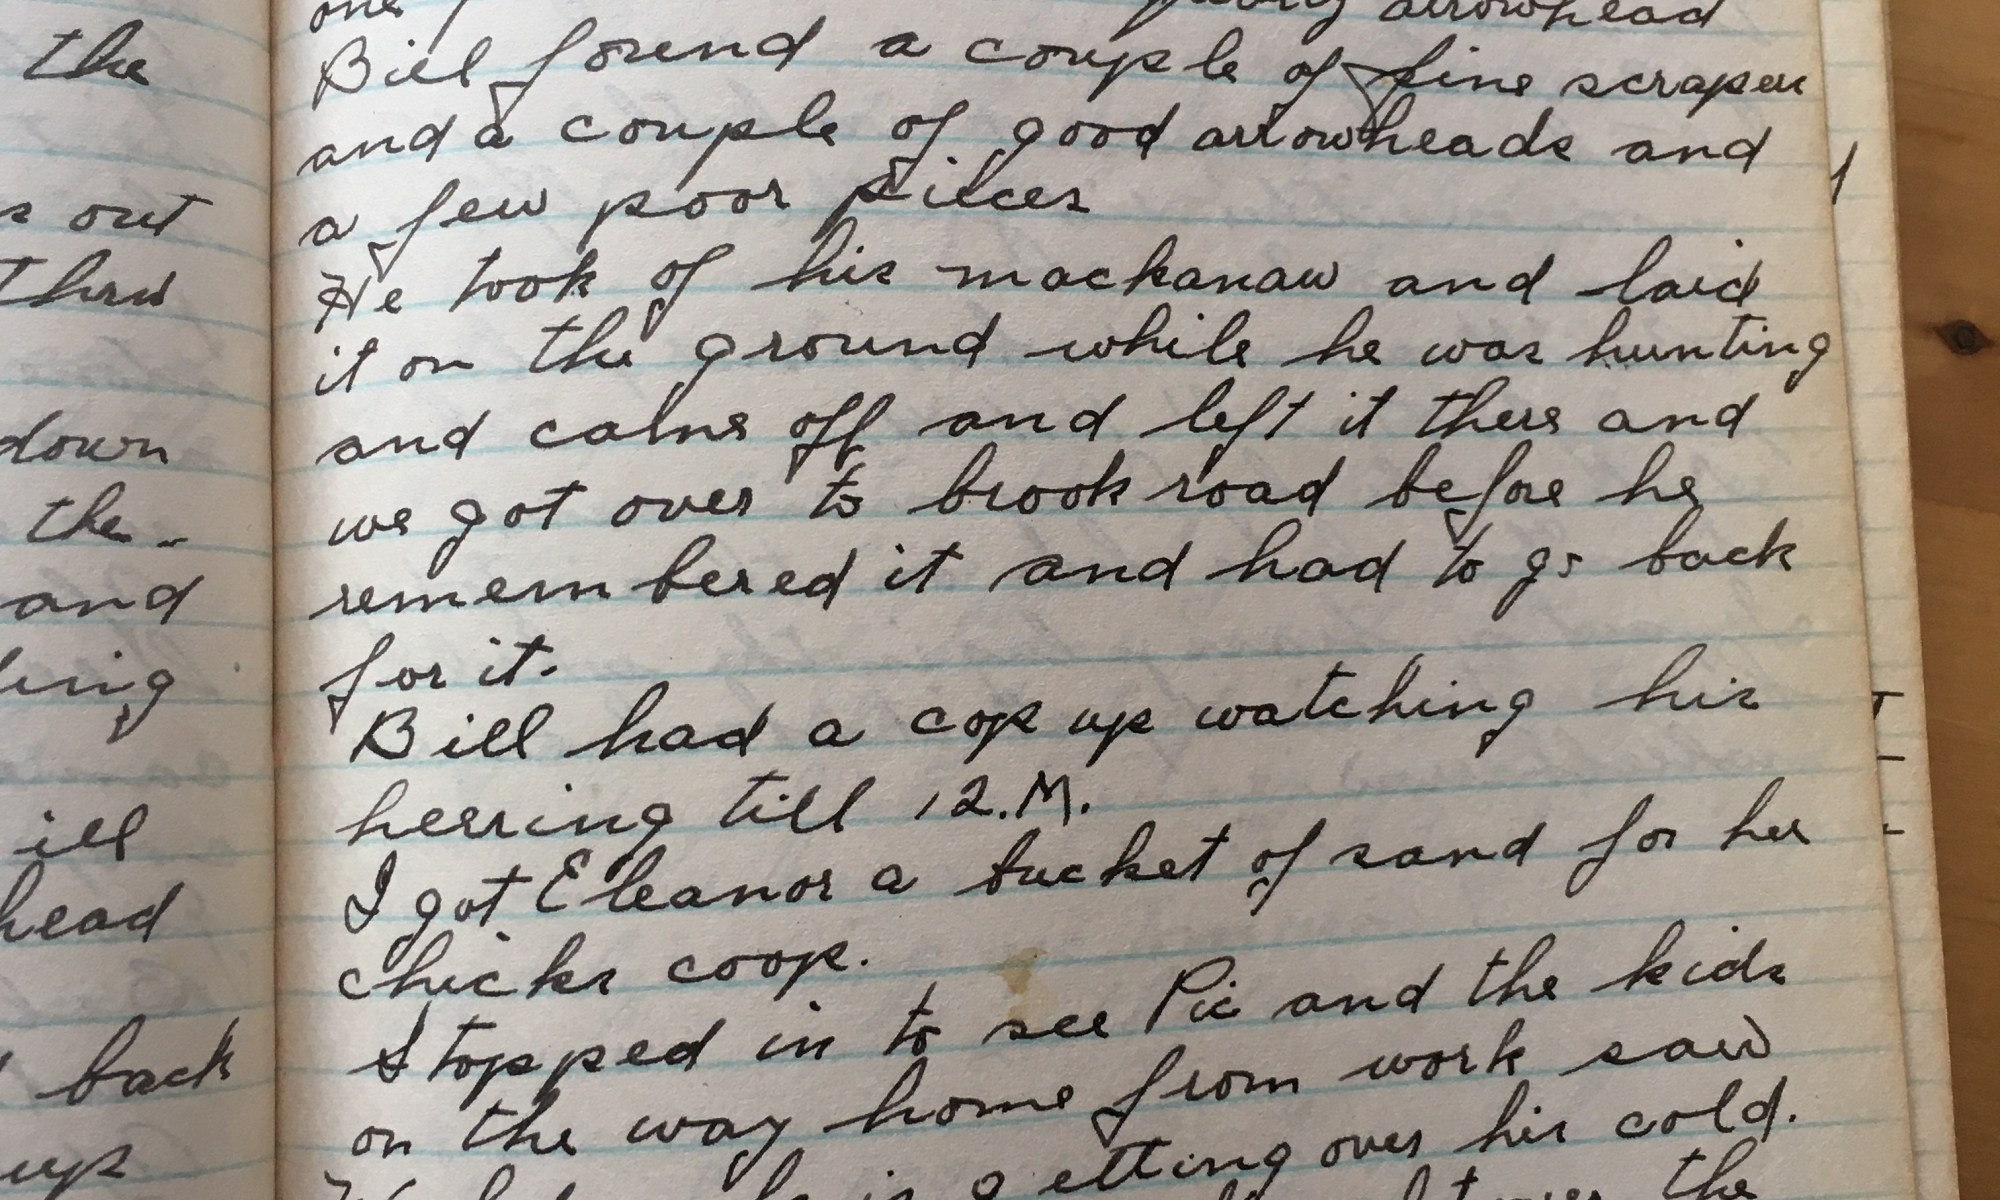 the
out
down
the
and
ill
head
back
up
arrowhead
Bill found a couple of fine scrapers
and a couple of good arrowheads and
a few poor pieces
He took of his mackanaw and laid
it on the ground while he was hunting
and came off and left it there and
we got over to brook road before he
remembered it and had to go back
for it.
Bill had a cop up watching his
herring till 12.M.
I got Eleanor a bucket of sand for her
chicks coop.
Stopped in to see Pic and the kids
on the way home from work saw
is getting over his cold.
the